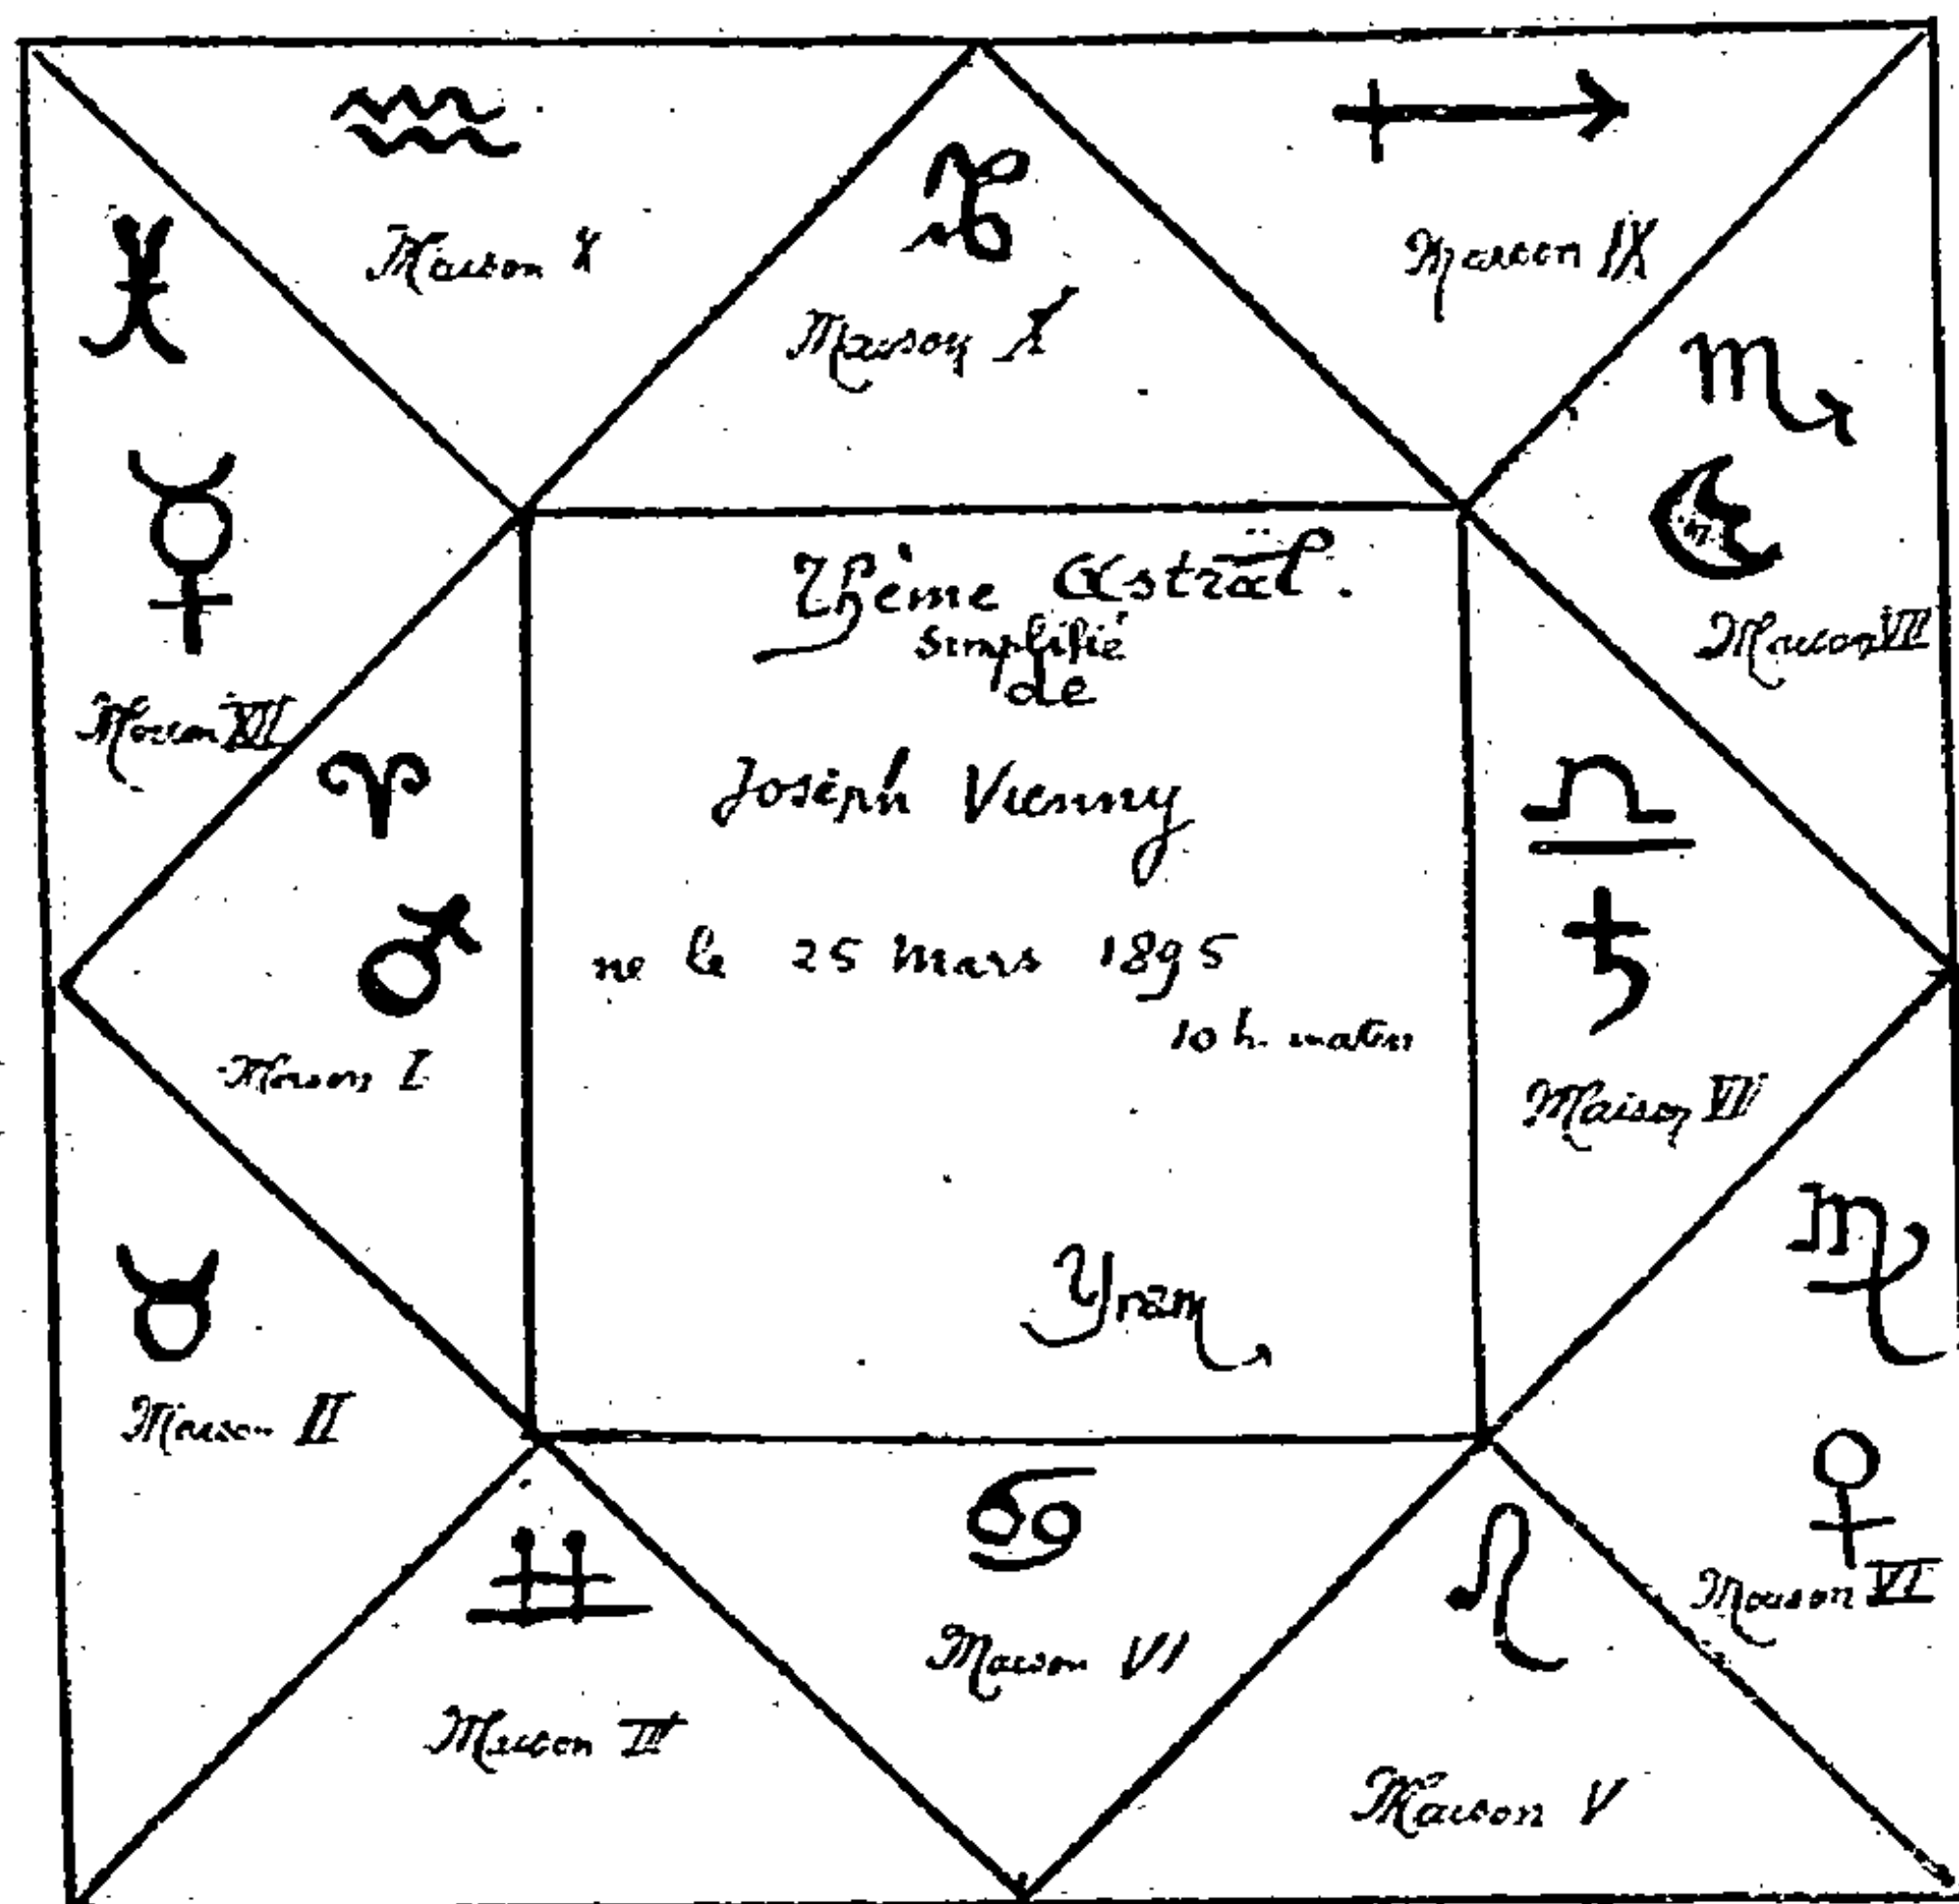 Maison X
Maison X
Maison IX
Maison VIII
Maison XII
Thème Astral.
Simplifié
de
Joseph Vienny
né le 25 Mars 1895
10 h. matin
Yram
Maison I
Maison VII
Maison II
Maison VI
Maison VI
Maison III
Maison V